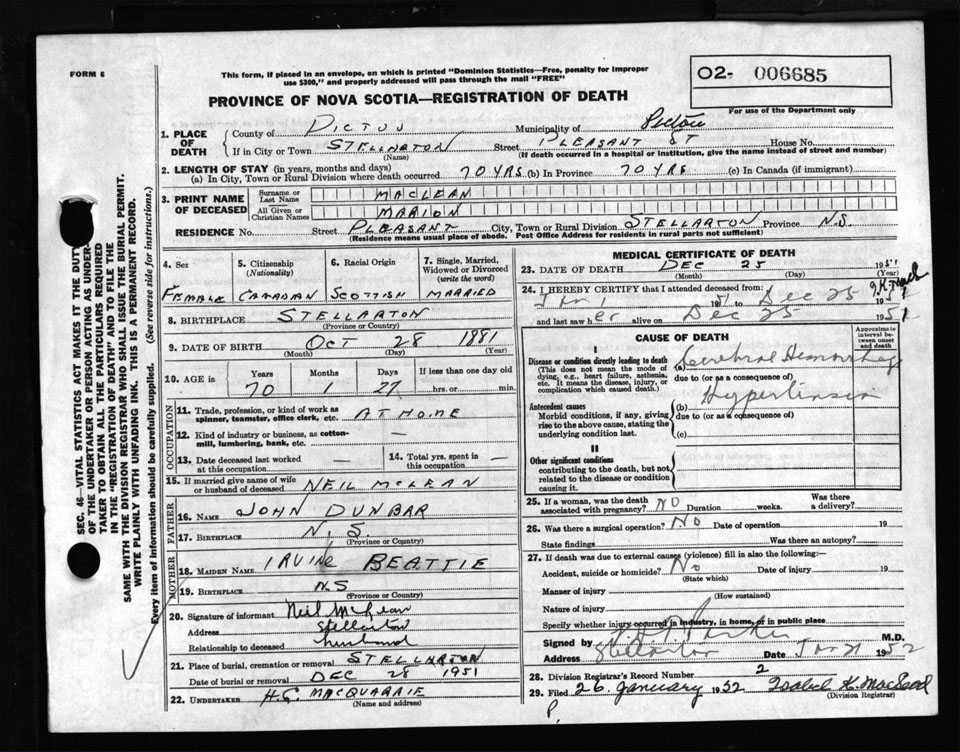 FORM 6
This form, if placed in an envelope, on which is printed "Dominion Statistics—Free, penalty for improper
use $300," and properly addressed will pass through the mail "FREE"
O2- 006685
For use of the Department only
PROVINCE OF NOVA SCOTIA—REGISTRATION OF DEATH
1. PLACE OF DEATH
County of PICTOU Municipality of Pictou
If in City or Town STELLARTON Street PLEASANT ST House No.
(Name) (If death occurred in a hospital or institution, give the name instead of street and number)
2. LENGTH OF STAY (in years, months and days)
(a) In City, Town or Rural Division where death occurred 70 YRS (b) In Province 70 YRS (c) In Canada (if immigrant)
3. PRINT NAME OF DECEASED
Surname or Last Name MACLEAN
All Given or Christian Names MARION
RESIDENCE No. Street PLEASANT City, Town or Rural Division STELLARTON Province N.S.
(Residence means usual place of abode. Post Office Address for residents in rural parts not sufficient)
4. Sex
FEMALE
5. Citizenship (Nationality)
CANADIAN
6. Racial Origin
SCOTTISH
7. Single, Married, Widowed or Divorced (write the word)
MARRIED
8. BIRTHPLACE STELLARTON
(Province or Country)
9. DATE OF BIRTH OCT 28 1881
(Month) (Day) (Year)
10. AGE in Years Months Days If less than one day old
70 1 27 hrs. or min.
OCCUPATION
11. Trade, profession, or kind of work as spinner, teamster, office clerk, etc. AT HOME
12. Kind of industry or business, as cotton-mill, lumbering, bank, etc. —
13. Date deceased last worked at this occupation —
14. Total yrs. spent in this occupation —
15. If married give name of wife or husband of deceased NEIL McLEAN
FATHER
16. NAME JOHN DUNBAR
17. BIRTHPLACE N.S.
(Province or Country)
MOTHER
18. MAIDEN NAME IRVINE BEATTIE
19. BIRTHPLACE N.S
(Province or Country)
20. Signature of informant Neil McLean
Address Stellarton
Relationship to deceased husband
21. Place of burial, cremation or removal STELLARTON
Date of burial or removal DEC 28 1951
22. UNDERTAKER H.G. MACQUARRIE
(Name and address)
MEDICAL CERTIFICATE OF DEATH
23. DATE OF DEATH DEC 25 1951
(Month) (Day) (Year)
24. I HEREBY CERTIFY that I attended deceased from:
to Dec 25 1951
and last saw her alive on Dec 25 1951
CAUSE OF DEATH
Approximate interval between onset and death
I
Disease or condition directly leading to death
(This does not mean the mode of dying, e.g., heart failure, asthenia, etc. It means the disease, injury, or complication which caused death.)
(a) Cerebral Hemorrhage
due to (or as a consequence of)
Hypertension
Antecedent causes
Morbid conditions, if any, giving rise to the above cause, stating the underlying condition last.
(b)
due to (or as a consequence of)
(c)
II
Other significant conditions
contributing to the death, but not related to the disease or condition causing it.
25. If a woman, was the death associated with pregnancy? NO Duration weeks. Was there a delivery?
26. Was there a surgical operation? NO Date of operation 19
State findings Was there an autopsy?
27. If death was due to external causes (violence) fill in also the following:
Accident, suicide or homicide? No Date of injury 19
(State which)
Manner of injury
(How sustained)
Nature of injury
Specify whether injury occurred in industry, in home, or in public place
Signed by M.D.
Address Stellarton Date Jan 21 1952
28. Division Registrar's Record Number 2
29. Filed 26. January 1952 Isobel K. MacLeod
(Division Registrar)
P.
SEC. 46—VITAL STATISTICS ACT MAKES IT THE DUTY
OF THE UNDERTAKER OR PERSON ACTING AS UNDER-
TAKER TO OBTAIN ALL THE PARTICULARS REQUIRED
IN THE "REGISTRATION OF DEATH" AND TO FILE THE
SAME WITH THE DIVISION REGISTRAR WHO SHALL ISSUE THE BURIAL PERMIT.
WRITE PLAINLY WITH UNFADING INK. THIS IS A PERMANENT RECORD.
Every item of information should be carefully supplied. (See reverse side for instructions.)